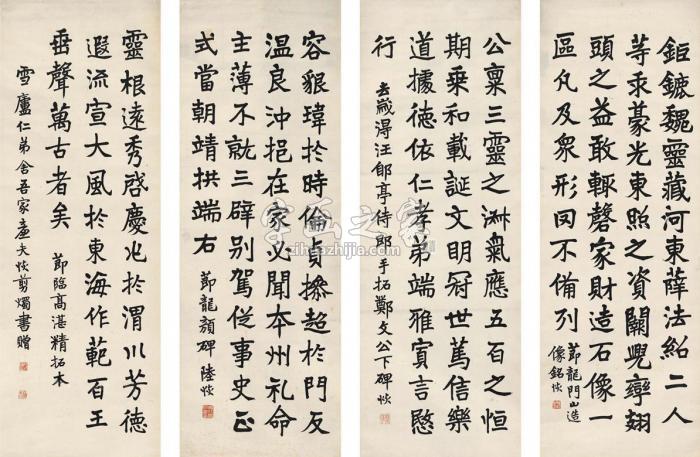 鉅鑣魏靈藏河東薛法紹二人
等豕蒙光東照之資闕兜率翅
頭之益敢輒磬家財造石像一
區凡及衆形罔不備列
節龍門山造
像銘恢
公稟三靈之淋氣應五百之恒
期乗和載誕文明冠世篤信樂
道據徳依仁孝弟端雅寅言愍
行
去嵗得汪郋亭侍郎手拓鄭文公下碑恢
容貌瑋於時倫貞摻超於門友
溫良沖挹在家必聞本州礼命
主薄不就三辟别駕従事史正
式當朝靖拱端右
節龍顔碑 陸恢
靈根遠秀啓慶兆於渭川芳徳
遐流宣大風於東海作範百王
垂聲萬古者矣
節臨高湛精拓本
雪廬仁弟舍吾家廉夫恢剪燭書贈
字画之家
zihuazhijia.com